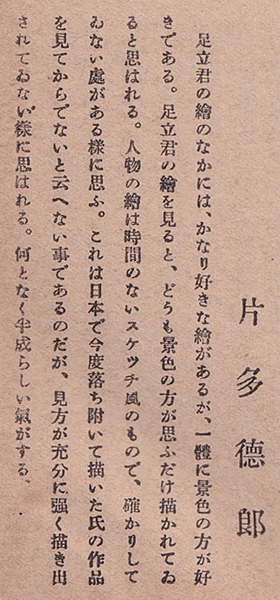 片多德郎
足立君の繪のなかには、かなり好きな繪があるが、一體に景色の方が好
きである。足立君の繪を見ると、どうも景色の方が思ふだけ描かれてゐ
ると思はれる。人物の繪は時間のないスケッチ風のもので、確かりして
ゐない處がある樣に思ふ。これは日本で今度落ち附いて描いた氏の作品
を見てからでないと云へない事であるのだが、見方が充分に强く描き出
されてゐない樣に思はれる。何となく半成らしい氣がする。